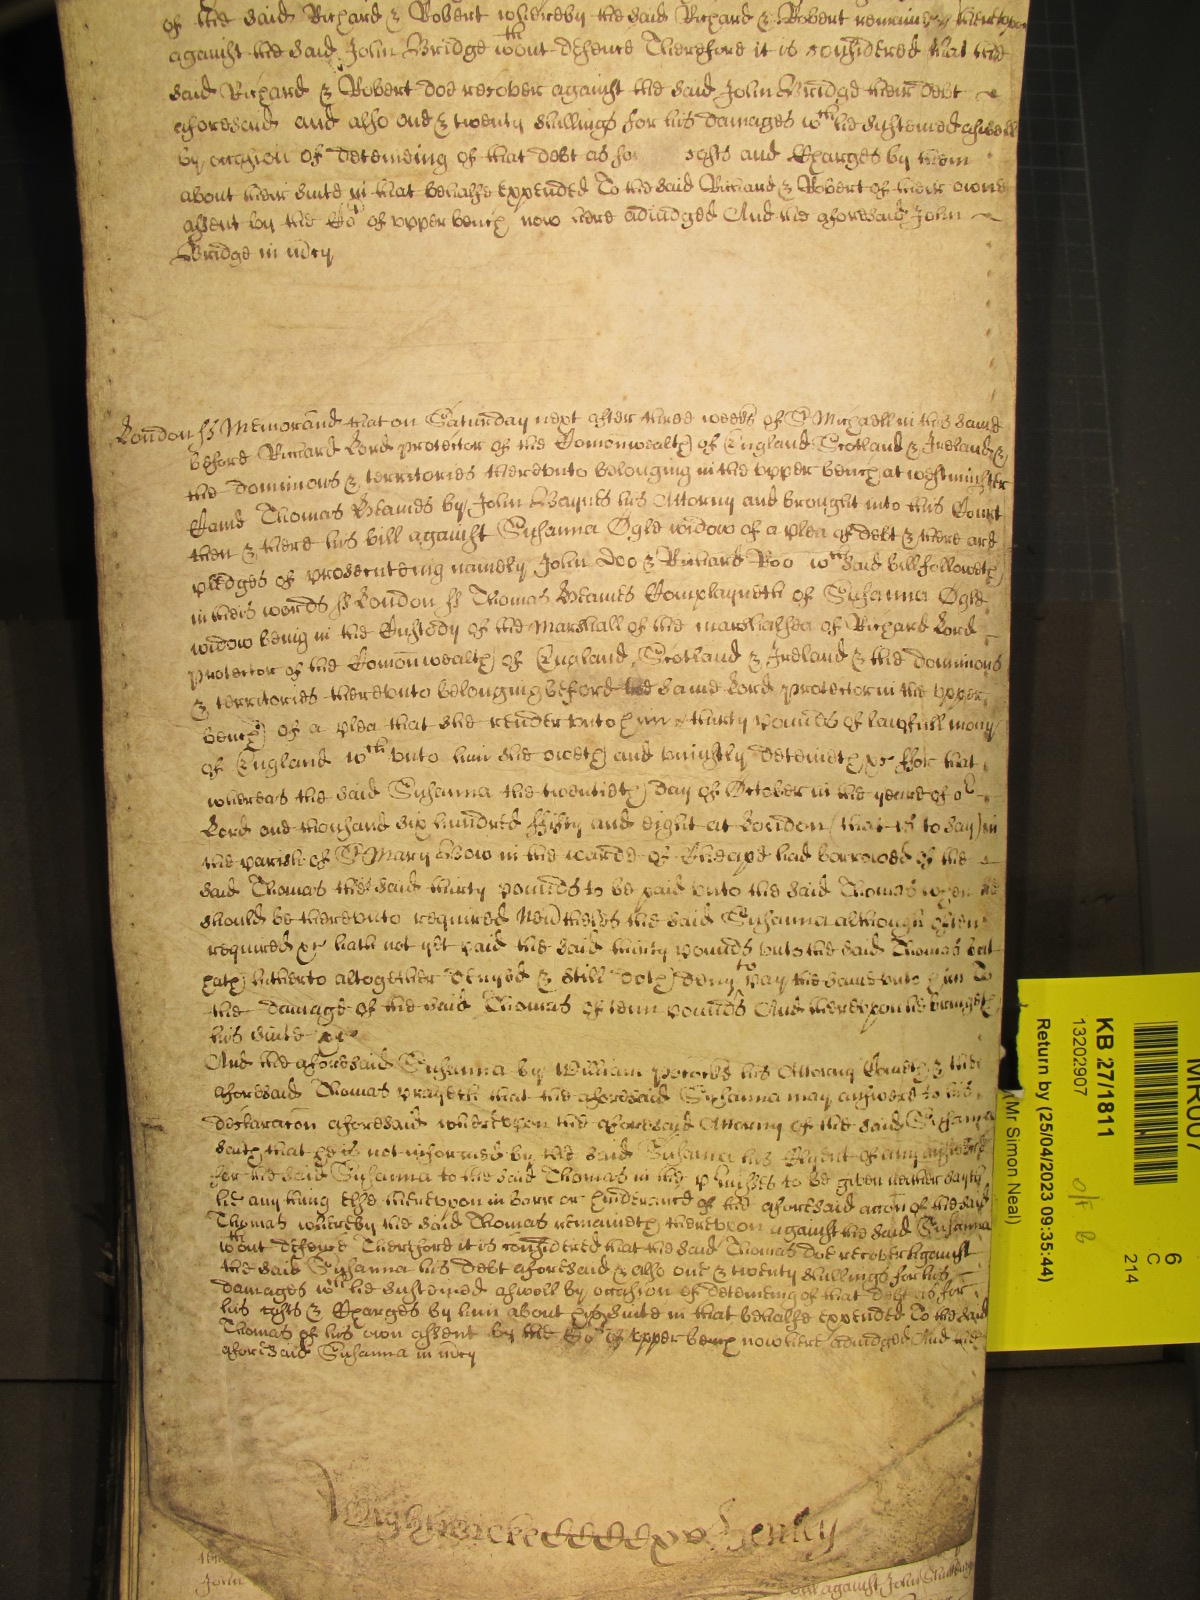 of the said Richard & Robert whereby the said Richard & Robert remaine thereupon
against the said John Bridge wthout defence Therefore it is considered that the
said Richard & Robert doe recover against the said John Bridge their debt
aforesaid and also one & twenty shillings for his damages wch he susteined aswell
by occasion of deteineing of that debt as for costs and Charges by them
about their suite in that behalfe expended To the said Richard & Robert of their owne
assent by the Cort of upper bench now here adiudged And the aforesaid John
Bridge in mcy
London ss Memorand that on Saturday next after three weeks of St Michaell in this same
before Richard Lord protector of the Comonwealth of England Scotland & Ireland &
the dominions & territories thereunto belonging in the upper bench at westminster
Came Thomas Beames by John Baynes his Attorny and brought into this Court
then & there his bill against Susanna Ogle widow of a plea of debt & there are
pledges of prosecuteing namely John Doo & Richard Roo wch said bill followeth
in theis words ss London ss Thomas Beames Complayneth of Susanna Ogle
widow being in the Custody of the Marshall of the marshalsea of Richard Lord
protector of the Comonwealth of England Scotland & Ireland & the dominions
& territories thereunto belonging before the same Lord protector in the upper
bench of a plea that she render unto him thirty pounds of lawfull mony
of England wch unto him she oweth and uniustly deteineth &c ffor that
whereas the said Susanna the twentieth day of October in the yeare of or
Lord one thousand six hundred fifty and eight at London (that is to say) in
the parish of St Mary Bow in the warde of Cheape had borrowed of the
said Thomas the said thirty pounds to be paid unto the said Thomas when he
should be thereunto required Nevertheles the said Susanna although often
required &c hath not yet paid the said thirty pounds unto the said Thomas but
hath hitherto altogether denyed & still doth deny to pay the same unto him To
the damage of the said Thomas of tenn pounds And thereupon he bringeth
his suite &c
And the aforesaid Susanna by William his Attorny Cometh & the
aforesaid Thomas prayeth that the aforesaid Susanna may answere to his
declaracon aforesaid whereupon the aforesaid Attorny of the said Susanna
saith that he is not informed by the said Susanna his Clyent of any answere
for the said Susanna to the said Thomas in the pmisses to be given neither sayth
he any thing else thereupon in barr or hinderance of the aforesaid accon of the said
Thomas whereby the said Thomas remaineth thereupon against the said Susanna
wthout defence Therefore it is considered that the said Thomas doe recover against
the said Susanna his debt aforesaid & also one & twenty shillings for his
damages wch he susteined aswell by occasion of deteineing of that debt as for
his costs & Charges by him about his suite in that behalfe expended To the said
Thomas of his own assent by the Cort of upper bench now here adiudged And the
aforesaid Susanna in mcy
Wightwicke Henley
John
against John
MR007
KB 27/1811
13202907
Return by (25/04/2023 09:35:44)
(Mr Simon Neal)
6
C
214